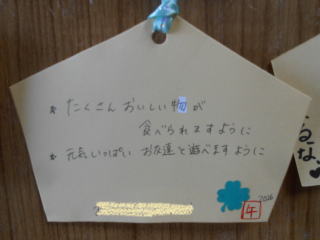 * たくさん おいしい物が
食べられますように
* 元気いっぱい お友達と遊べますように
2026
午
るな